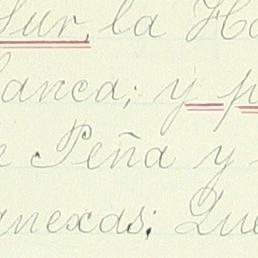 Sur, la
lanca; y
Peña y
anexas; Que